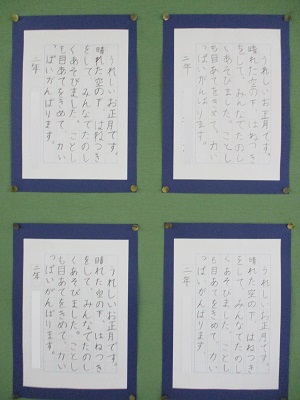 うれしいお正月です。
晴れた空の下、はねつき
をして、みんなでたのし
くあそびました。ことし
も目あてをきめて、力い
っぱいがんばります。
二年
うれしいお正月です。
晴れた空の下、はねつき
をして、みんなでたのし
くあそびました。ことし
も目あてをきめて、力い
っぱいがんばります。
二年
うれしいお正月です。
晴れた空の下、はねつき
をして、みんなでたのし
くあそびました。ことし
も目あてをきめて、力い
っぱいがんばります。
二年
うれしいお正月です。
晴れた空の下、はねつき
をして、みんなでたのし
くあそびました。ことし
も目あてをきめて、力い
っぱいがんばります。
二年